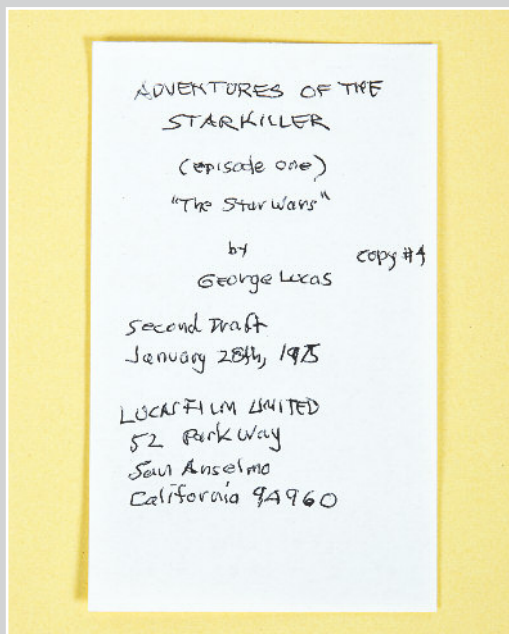 ADVENTURES OF THE
STARKILLER
(episode one)
"The Star Wars"
by
copy #4
George Lucas
Second Draft
January 28th, 1975
LUCASFILM LIMITED
52 Park Way
San Anselmo
California 94960